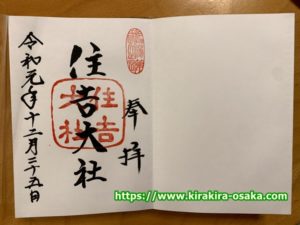 奉拝
住吉大社
住吉大社
令和元年十二月二十五日
https://www.kirakira-osaka.com